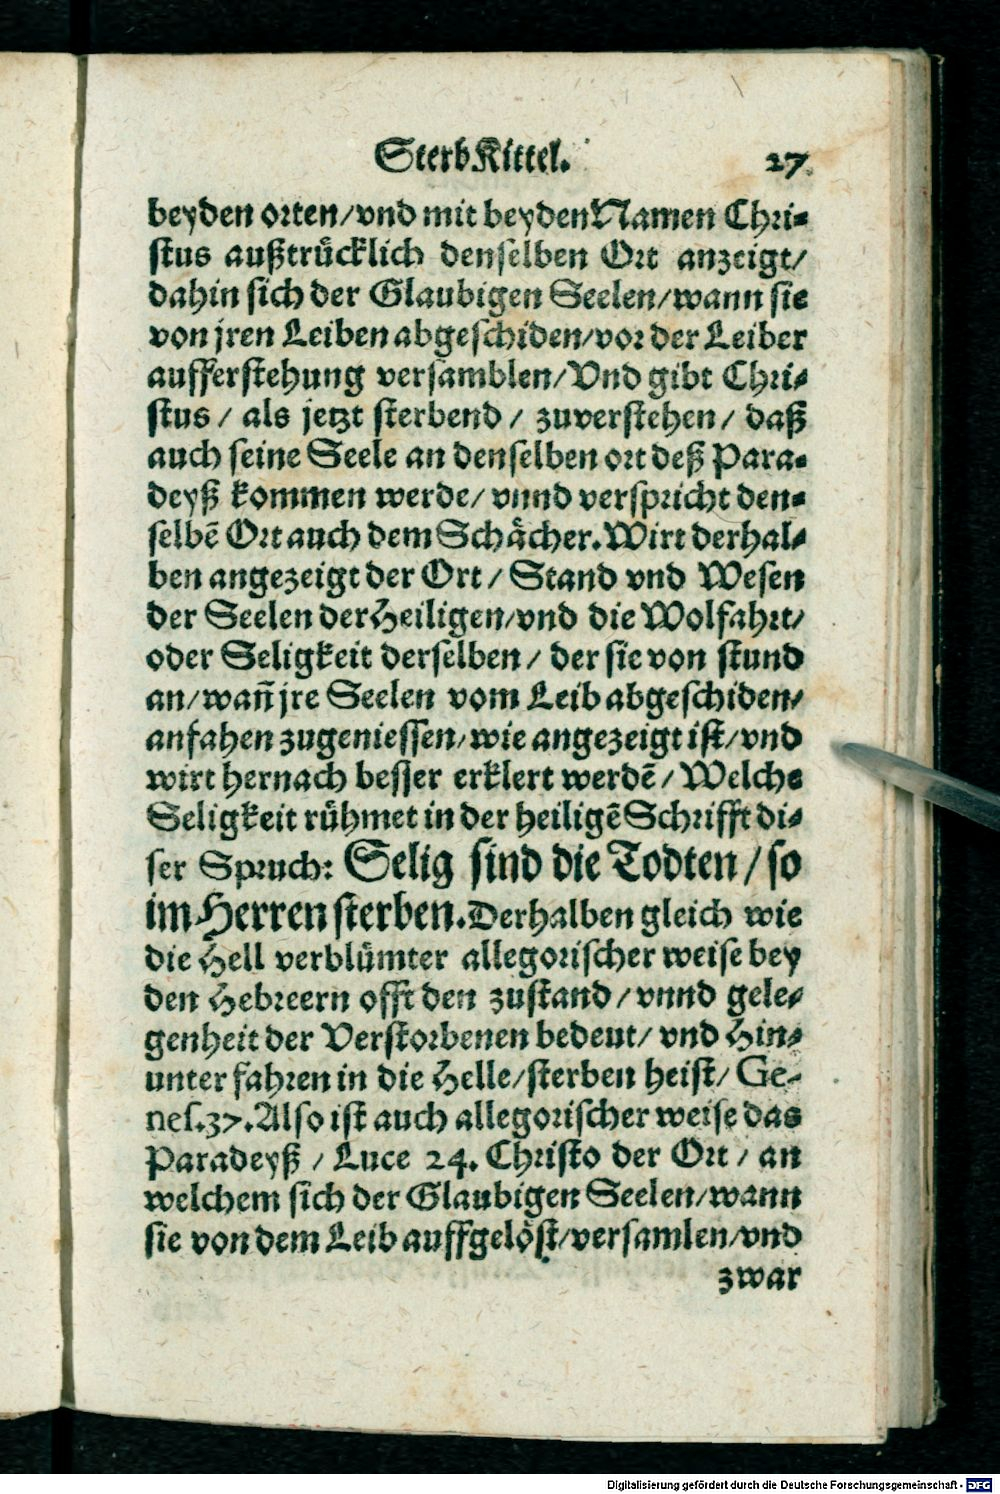 SterbKittel. 27
beyden orten/vnd mit beyden Namen Chri-
stus außtrücklich denselben Ort anzeigt/
dahin sich der Glaubigen Seelen/wann sie
von jren Leiben abgeschiden/vor der Leiber
aufferstehung versamblen/Vnd gibt Chri-
stus/ als jetzt sterbend/ zuverstehen/ daß
auch seine Seele an denselben ort deß Para-
deyß kommen werde/ vnnd verspricht den-
selbē Ort auch dem Schächer. Wirt derhal-
ben angezeigt der Ort/ Stand vnd Wesen
der Seelen der Heiligen/vnd die Wolfahrt/
oder Seligkeit derselben/ der sie von stund
an/wañ jre Seelen vom Leib abgeschiden/
anfahen zugeniessen/wie angezeigt ist/vnd
wirt hernach besser erklert werdē/ Welche
Seligkeit rühmet in der heiligē Schrifft di-
ser Spruch: Selig sind die Todten/so
im Herren sterben. Derhalben gleich wie
die Hell verblümter allegorischer weise bey
den Hebreern offt den zustand/vnnd gele-
genheit der Verstorbenen bedeut/ vnd Hin-
unter fahren in die Helle/sterben heist/ Ge-
nes.37. Also ist auch allegorischer weise das
Paradeyß/ Luce 24. Christo der Ort/ an
welchem sich der Glaubigen Seelen/wann
sie von dem Leib auffgelöst/versamlen/vnd
zwar
Digitalisierung gefördert durch die Deutsche Forschungsgemeinschaft - DFG